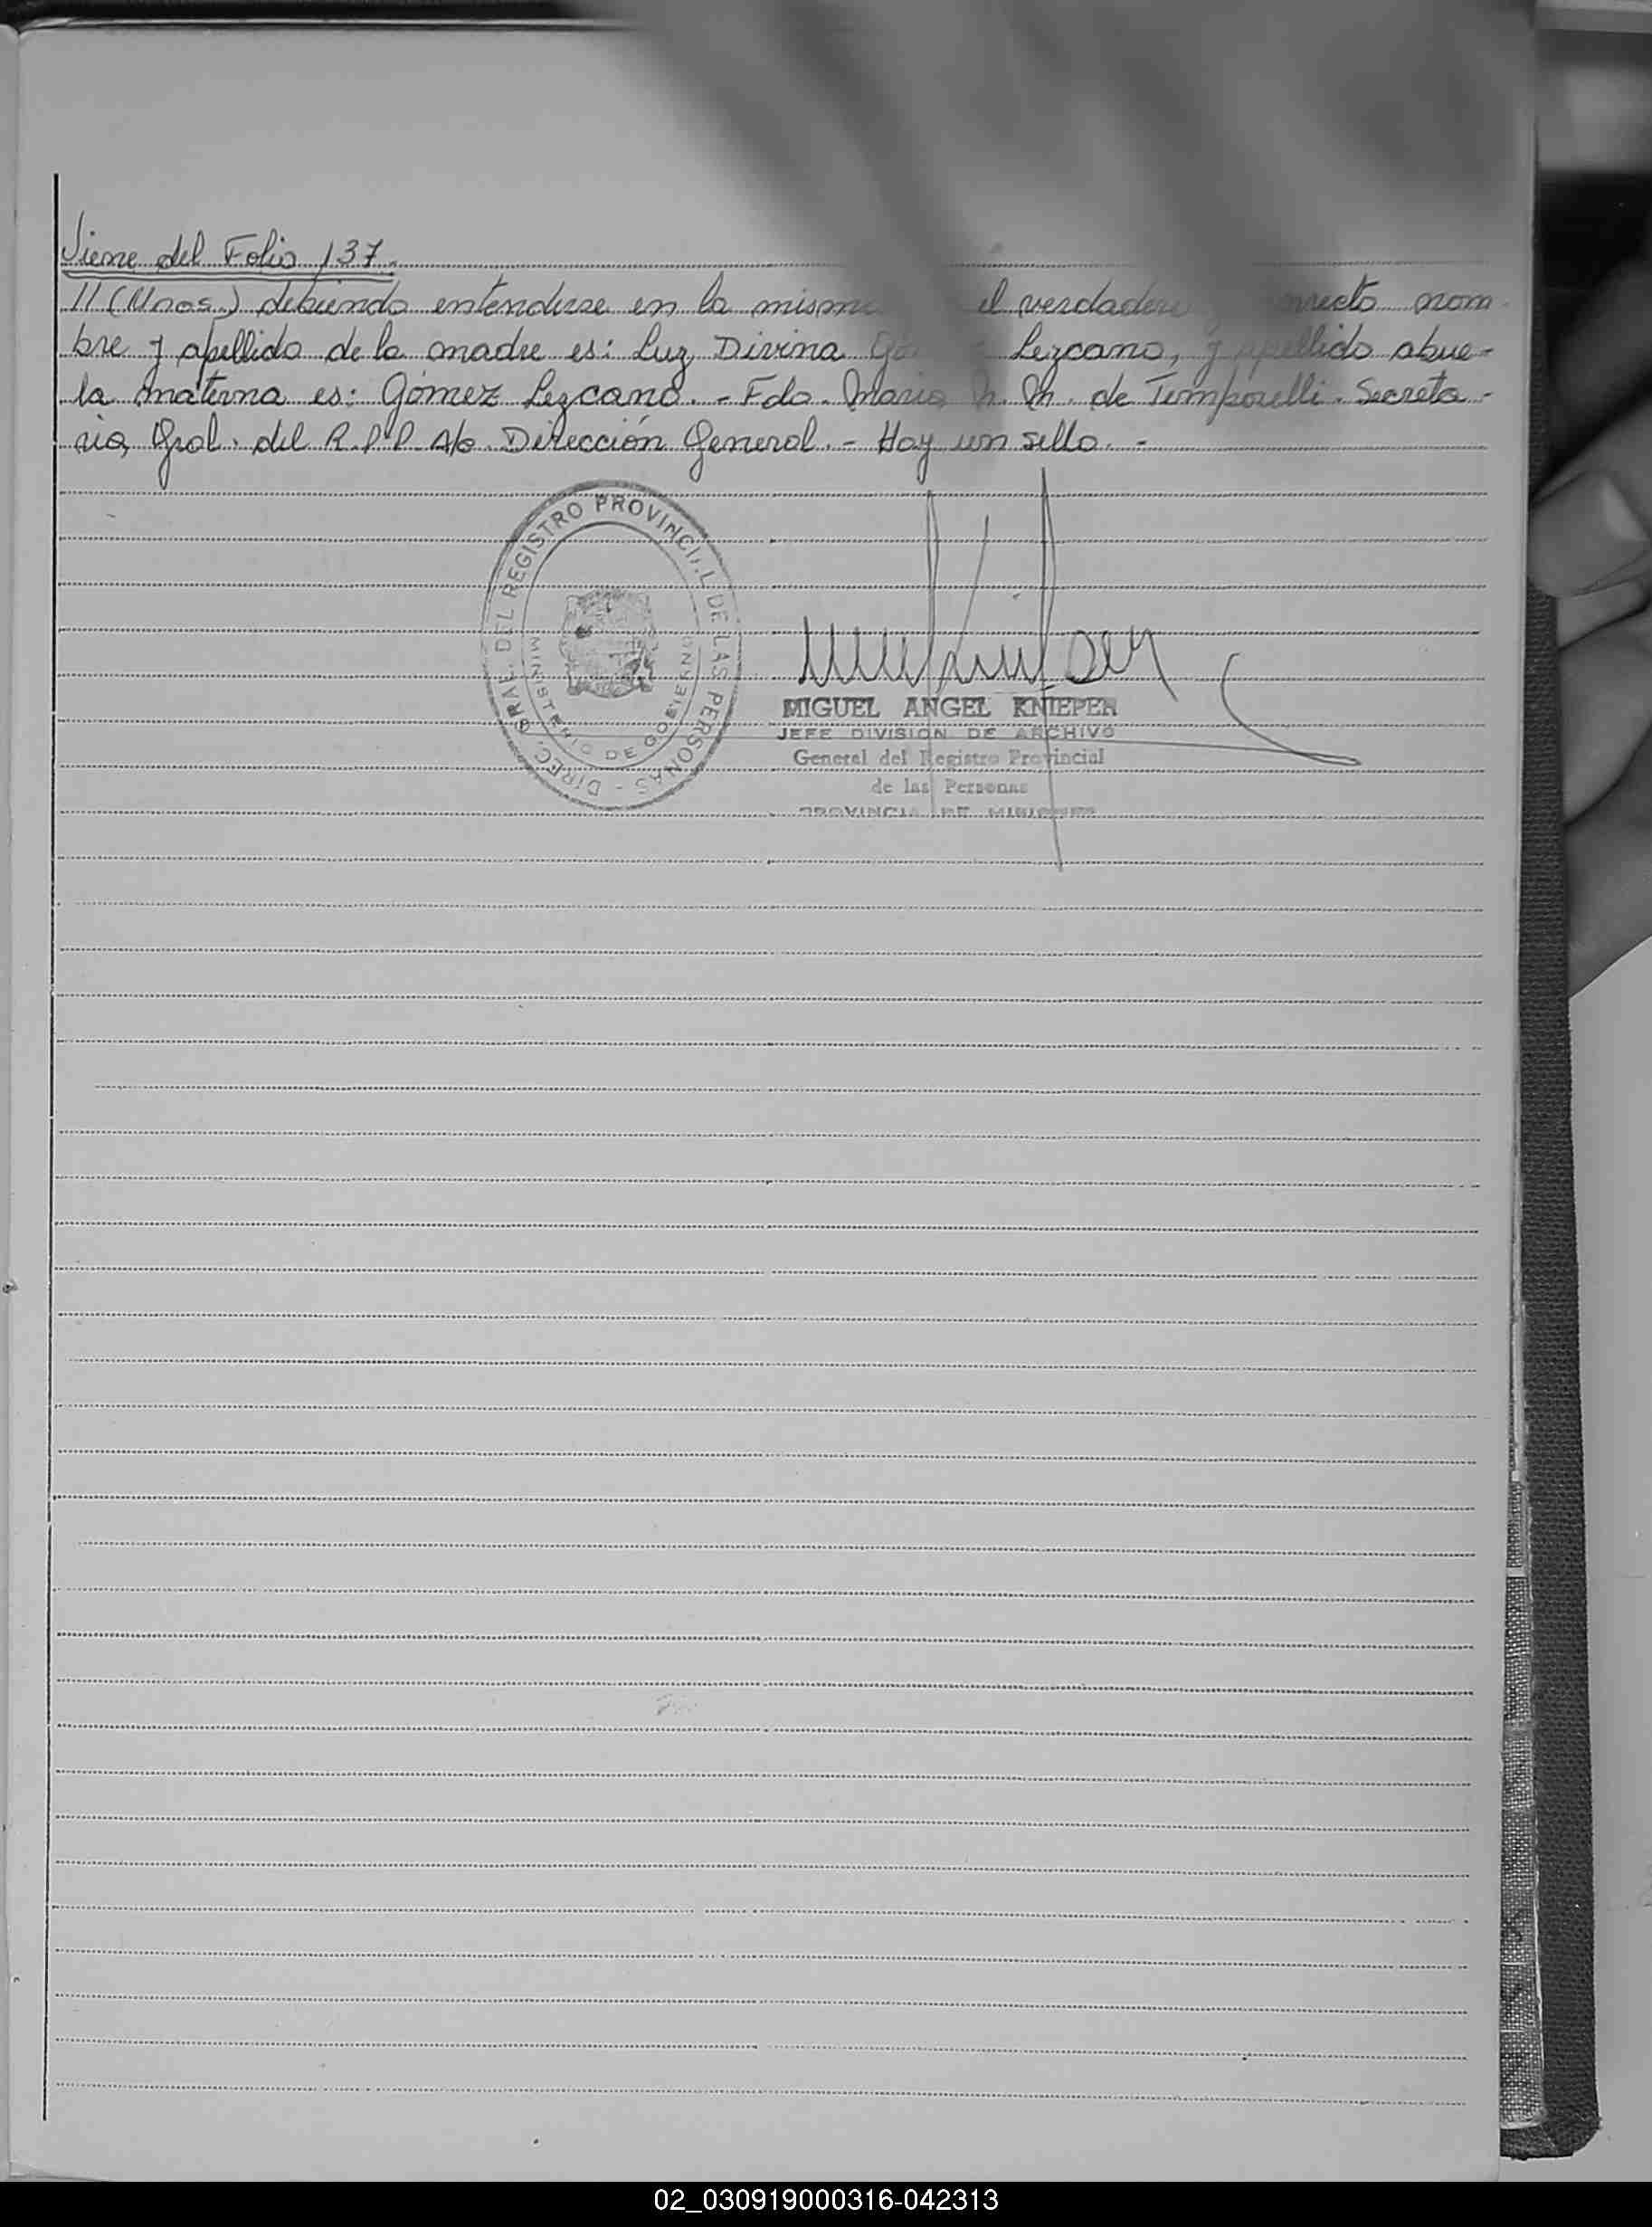 Viene del Folio 137.
11 (Mnos.) debiendo entenderse en la misma el verdadero y correcto nom-
bre y apellido de la madre es: Luz Divina Gómez Lezcano, y apellido abue-
la materna es: Gómez Lezcano. - Fdo. Maria M. M. de Temporelli. Secreta-
ria Gral. del R.P.P. A/c. Dirección General. - Hay un sello. -
DIREC. GRAL. DEL REGISTRO PROVINCIAL DE LAS PERSONAS -
MINISTERIO DE GOBIERNO
MIGUEL ANGEL KNIEPER
JEFE DIVISION DE ARCHIVO
General del Registro Provincial
de las Personas
PROVINCIA DE MISIONES
02_030919000316-042313